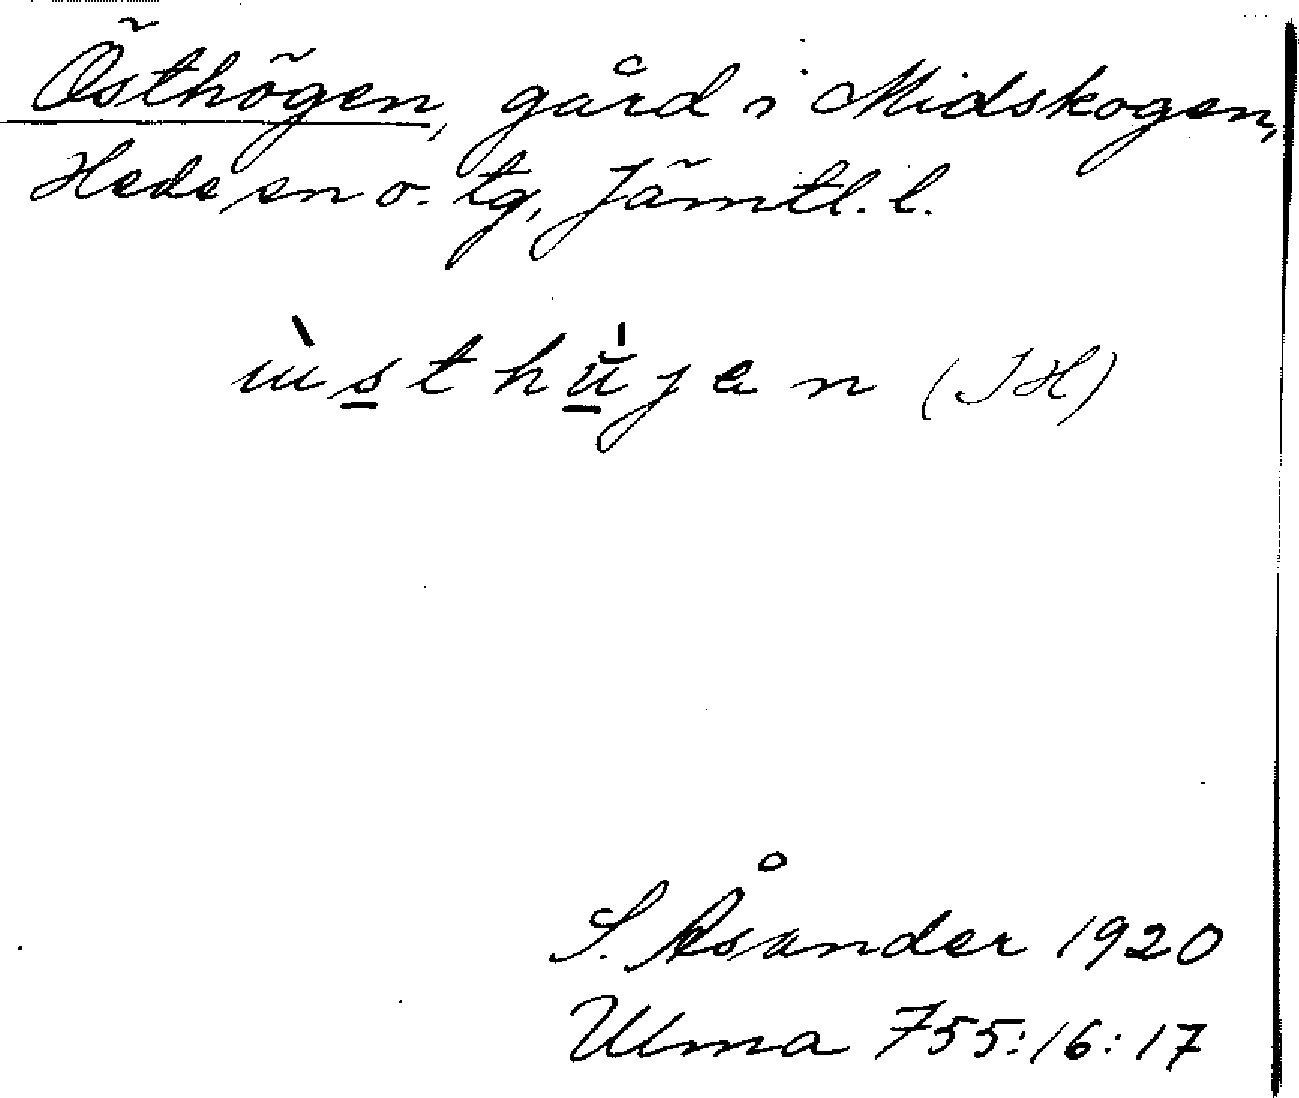 Östhögen, gård i Midskogen,
Hede sn o. tg, Jämtl. l.
(JH)
S. Åsander 1920
Ulma 755:16:17